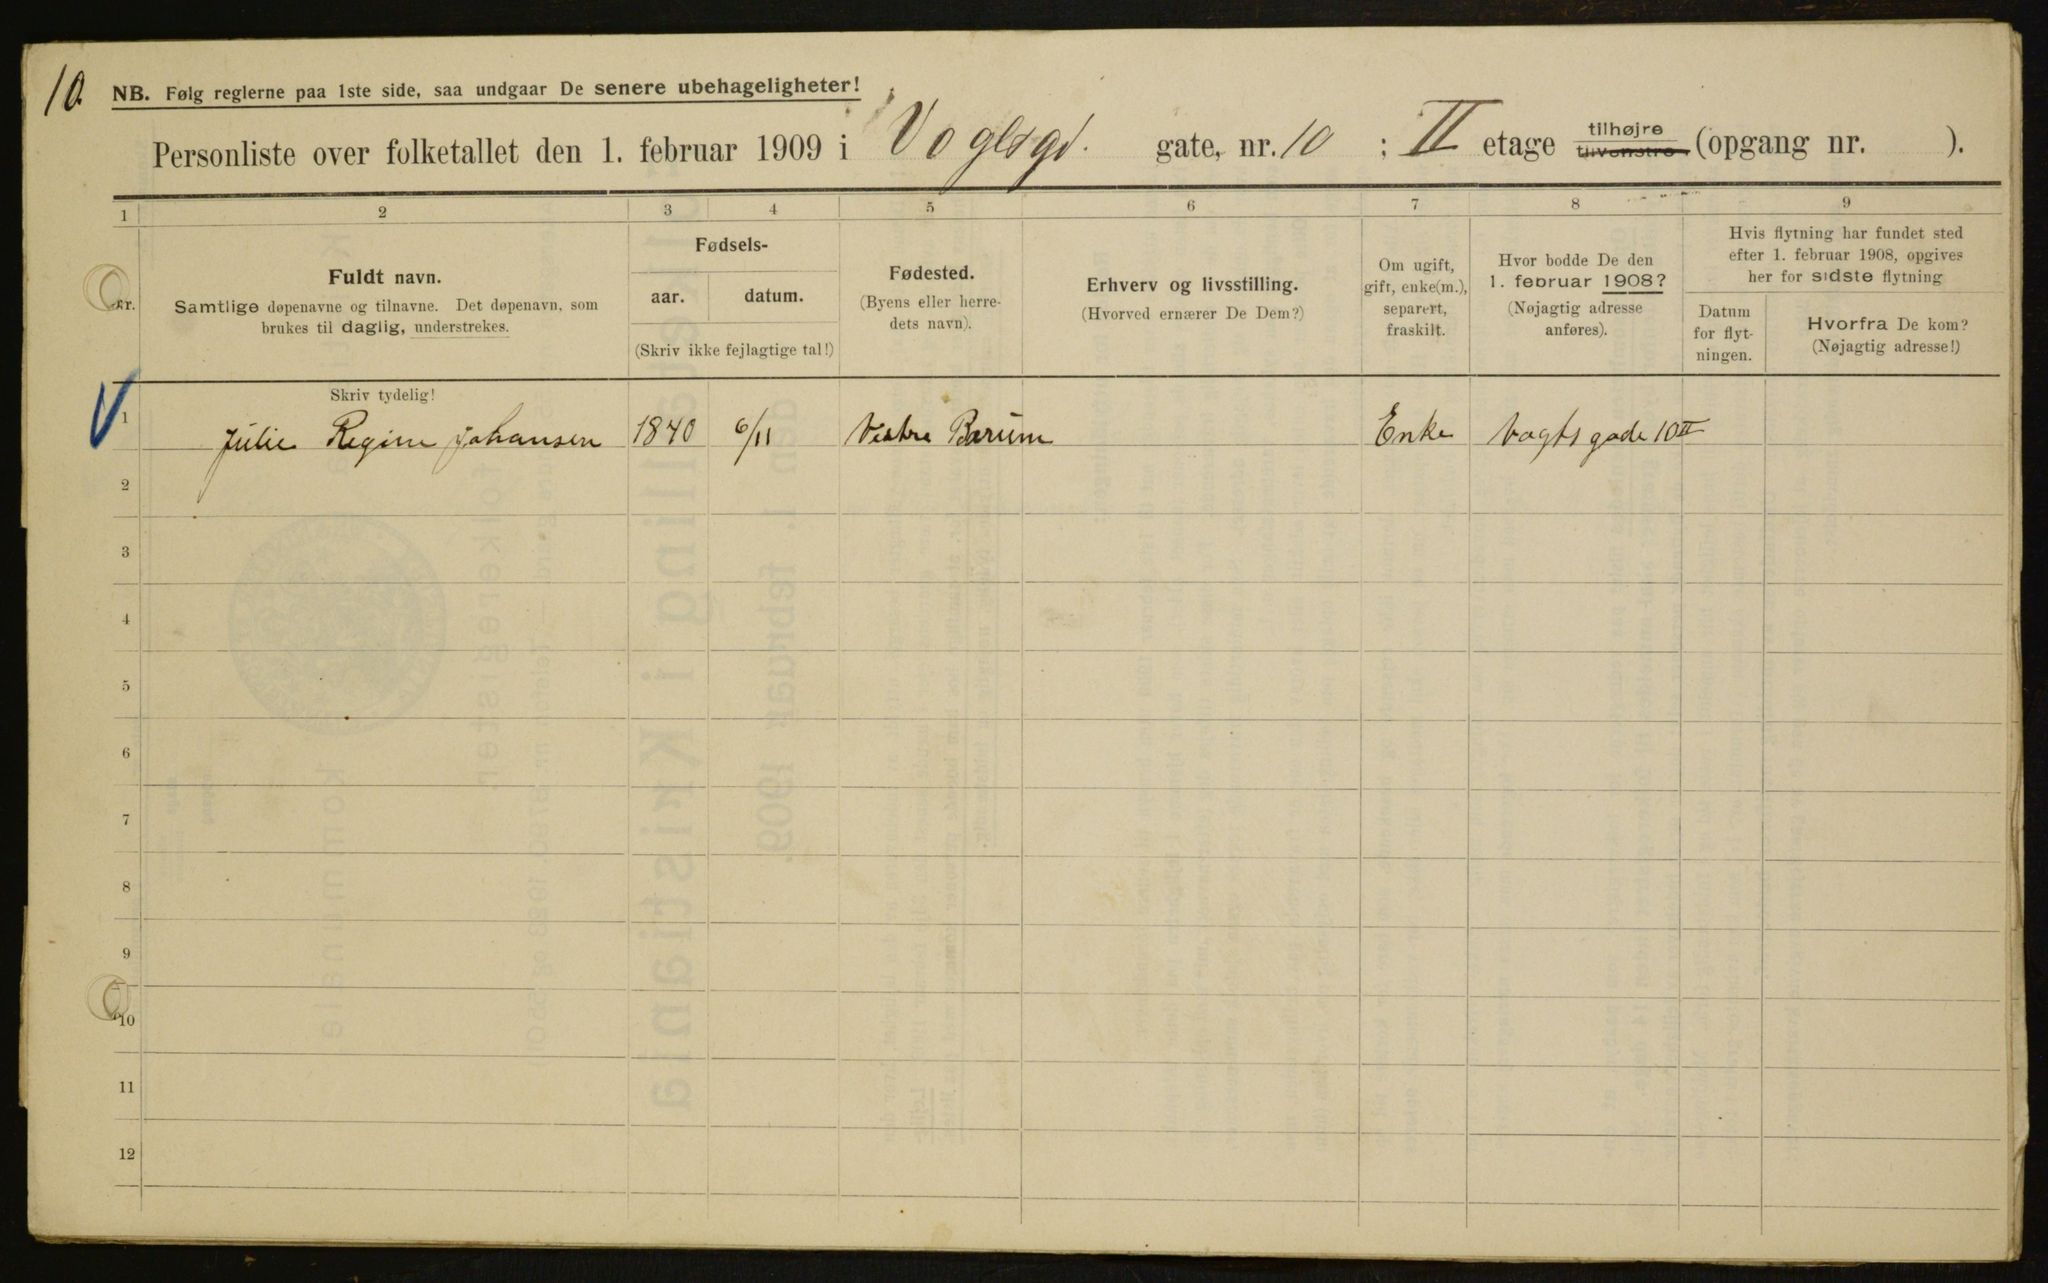 10.
NB. Følg reglerne paa 1ste side, saa undgaar De senere ubehageligheter!
Personliste over folketallet den 1. februar 1909 i Vogtsgd. gate, nr. 10 : II etage tilhøjre tilvenstre (opgang nr. ).
1 2 3 4 5 6 7 8 9
Nr.
Fuldt navn.
Samtlige døpenavne og tilnavne. Det døpenavn, som
brukes til daglig, understrekes.
Fødsels-
aar. datum.
(Skriv ikke fejlagtige tal!)
Fødested.
(Byens eller herre-
dets navn).
Erhverv og livsstilling.
(Hvorved ernærer De Dem?)
Om ugift,
gift, enke(m.),
separert,
fraskilt.
Hvor bodde De den
1. februar 1908?
(Nøjagtig adresse
anføres).
Hvis flytning har fundet sted
efter 1. februar 1908, opgives
her for sidste flytning
Datum
for flyt-
ningen.
Hvorfra De kom?
(Nøjagtig adresse!)
Skriv tydelig!
1 Julie Regine Johansen 1840 6/11 Vestre Bærum Enke Vogtsgade 10 II
2
3
4
5
6
7
8
9
10
11
12